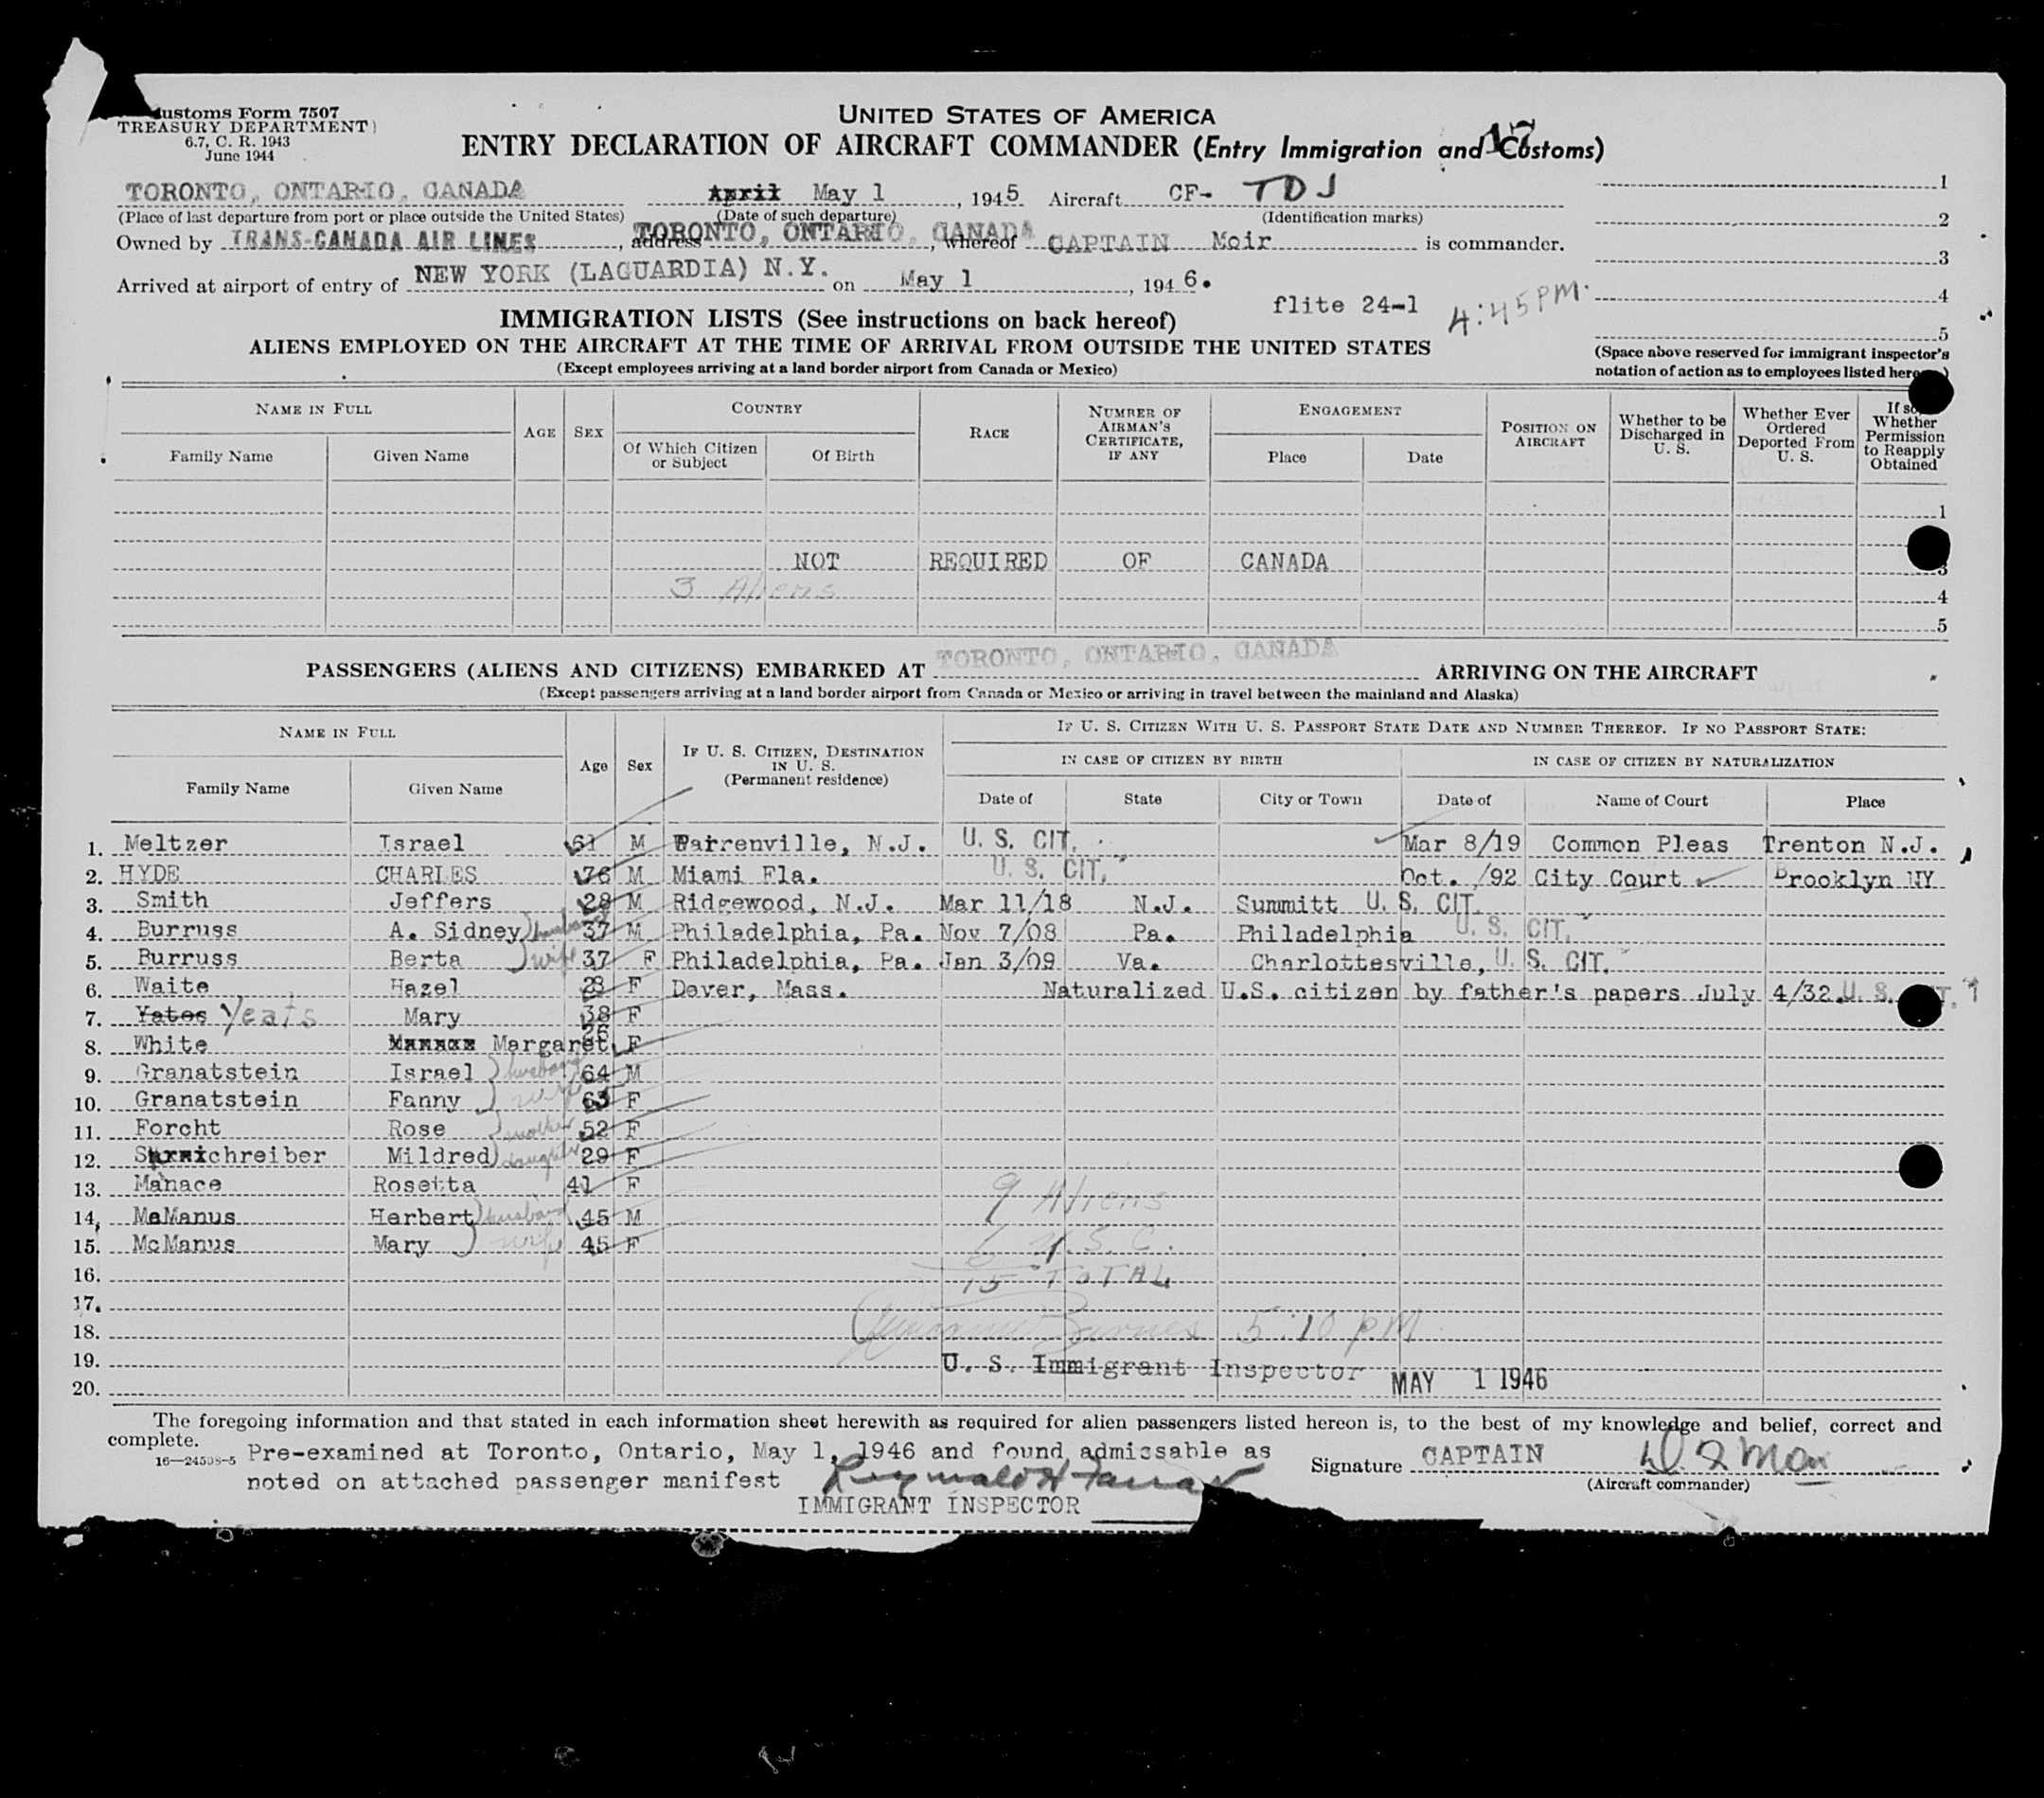 Customs Form 7507
TREASURY DEPARTMENT
6.7, C. R. 1943
June 1944
UNITED STATES OF AMERICA
ENTRY DECLARATION OF AIRCRAFT COMMANDER (Entry Immigration and Customs)
17
TORONTO, ONTARIO, CANADA April May 1, 1945 Aircraft CF- TDJ
(Place of last departure from port or place outside the United States) (Date of such departure) (Identification marks)
Owned by TRANS-CANADA AIR LINES, address TORONTO, ONTARIO, CANADA, whereof CAPTAIN Moir is commander.
Arrived at airport of entry of NEW YORK (LAGUARDIA) N.Y. on May 1, 1946.
flite 24-1 4:45 PM.
1
2
3
4
5
(Space above reserved for immigrant inspector's notation of action as to employees listed
IMMIGRATION LISTS (See instructions on back hereof)
ALIENS EMPLOYED ON THE AIRCRAFT AT THE TIME OF ARRIVAL FROM OUTSIDE THE UNITED STATES
(Except employees arriving at a land border airport from Canada or Mexico)
NAME IN FULL AGE SEX COUNTRY RACE NUMBER OF AIRMAN'S CERTIFICATE, IF ANY ENGAGEMENT POSITION ON AIRCRAFT Whether to be Discharged in U. S. Whether Ever Ordered Deported From U. S. If so, Whether Permission to Reapply Obtained
Family Name Given Name Of Which Citizen or Subject Of Birth Place Date
1
NOT REQUIRED OF CANADA 3
3 Aliens 4
5
PASSENGERS (ALIENS AND CITIZENS) EMBARKED AT TORONTO, ONTARIO, CANADA ARRIVING ON THE AIRCRAFT
(Except passengers arriving at a land border airport from Canada or Mexico or arriving in travel between the mainland and Alaska)
NAME IN FULL Age Sex IF U. S. CITIZEN, DESTINATION IN U. S. (Permanent residence) IF U. S. CITIZEN WITH U. S. PASSPORT STATE DATE AND NUMBER THEREOF. IF NO PASSPORT STATE:
IN CASE OF CITIZEN BY BIRTH IN CASE OF CITIZEN BY NATURALIZATION
Family Name Given Name Date of State City or Town Date of Name of Court Place
1. Meltzer Israel 61 M Warrenville, N.J. U. S. CIT. Mar 8/19 Common Pleas Trenton N.J.
2. HYDE CHARLES 76 M Miami Fla. U. S. CIT. Oct. /92 City Court Brooklyn NY
3. Smith Jeffers 28 M Ridgewood, N.J. Mar 11/18 N.J. Summitt U. S. CIT.
4. Burruss A. Sidney husband 37 M Philadelphia, Pa. Nov 7/08 Pa. Philadelphia U. S. CIT.
5. Burruss Berta wife 37 F Philadelphia, Pa. Jan 3/09 Va. Charlottesville, U. S. CIT.
6. Waite Hazel 28 F Dover, Mass. Naturalized U.S. citizen by father's papers July 4/32. U. S.
7. Yates Yeats Mary 38 F
8. White Margaret 26 F
9. Granatstein Israel husband 64 M
10. Granatstein Fanny wife 63 F
11. Forcht Rose mother 52 F
12. Schreiber Mildred daughter 29 F
13. Manace Rosetta 41 F
14. McManus Herbert husband 45 M
15. McManus Mary wife 45 F
9 Aliens
6 U.S.C.
15 TOTAL
16.
17.
18. 5:10 PM
19. U. S. Immigrant Inspector MAY 1 1946
20.
The foregoing information and that stated in each information sheet herewith as required for alien passengers listed hereon is, to the best of my knowledge and belief, correct and
complete.
16—24598-5 Pre-examined at Toronto, Ontario, May 1, 1946 and found admissable as
noted on attached passenger manifest
IMMIGRANT INSPECTOR
Signature CAPTAIN
(Aircraft commander)